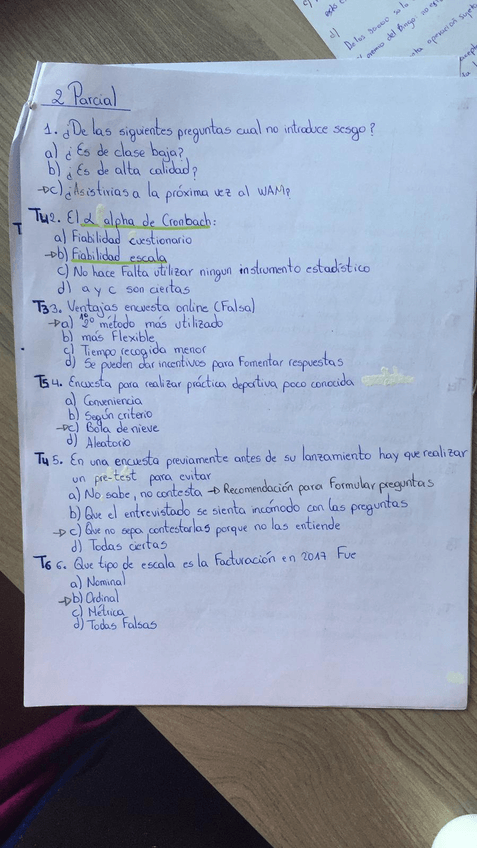 2 Parcial
1. ¿De las siguientes preguntas cual no introduce sesgo?
a) ¿Es de clase baja?
b) ¿Es de alta calidad?
→c) ¿Asistirias a la próxima vez al WAM?
T4 2. El α alpha de Cronbach:
a) Fiabilidad cuestionario
→b) Fiabilidad escala
c) No hace falta utilizar ningun instrumento estadístico
d) a y c son ciertas
T3 3. Ventajas encuesta online (Falsa)
→a) 2º método más utilizado
b) más flexible
c) Tiempo recogida menor
d) Se pueden dar incentivos para fomentar respuestas
T5 4. Encuesta para realizar práctica deportiva poco conocida
a) Conveniencia
b) Según criterio
→c) Bola de nieve
d) Aleatorio
T4 5. En una encuesta previamente antes de su lanzamiento hay que realizar
un pre-test para evitar
a) No sabe, no contesta → Recomendación para formular preguntas
b) Que el entrevistado se sienta incómodo con las preguntas
→c) Que no sepa contestarlas porque no las entiende
d) Todas ciertas
T6 6. Que tipo de escala es la facturación en 2017 fue
a) Nominal
→b) Ordinal
c) Métrica
d) Todas falsas